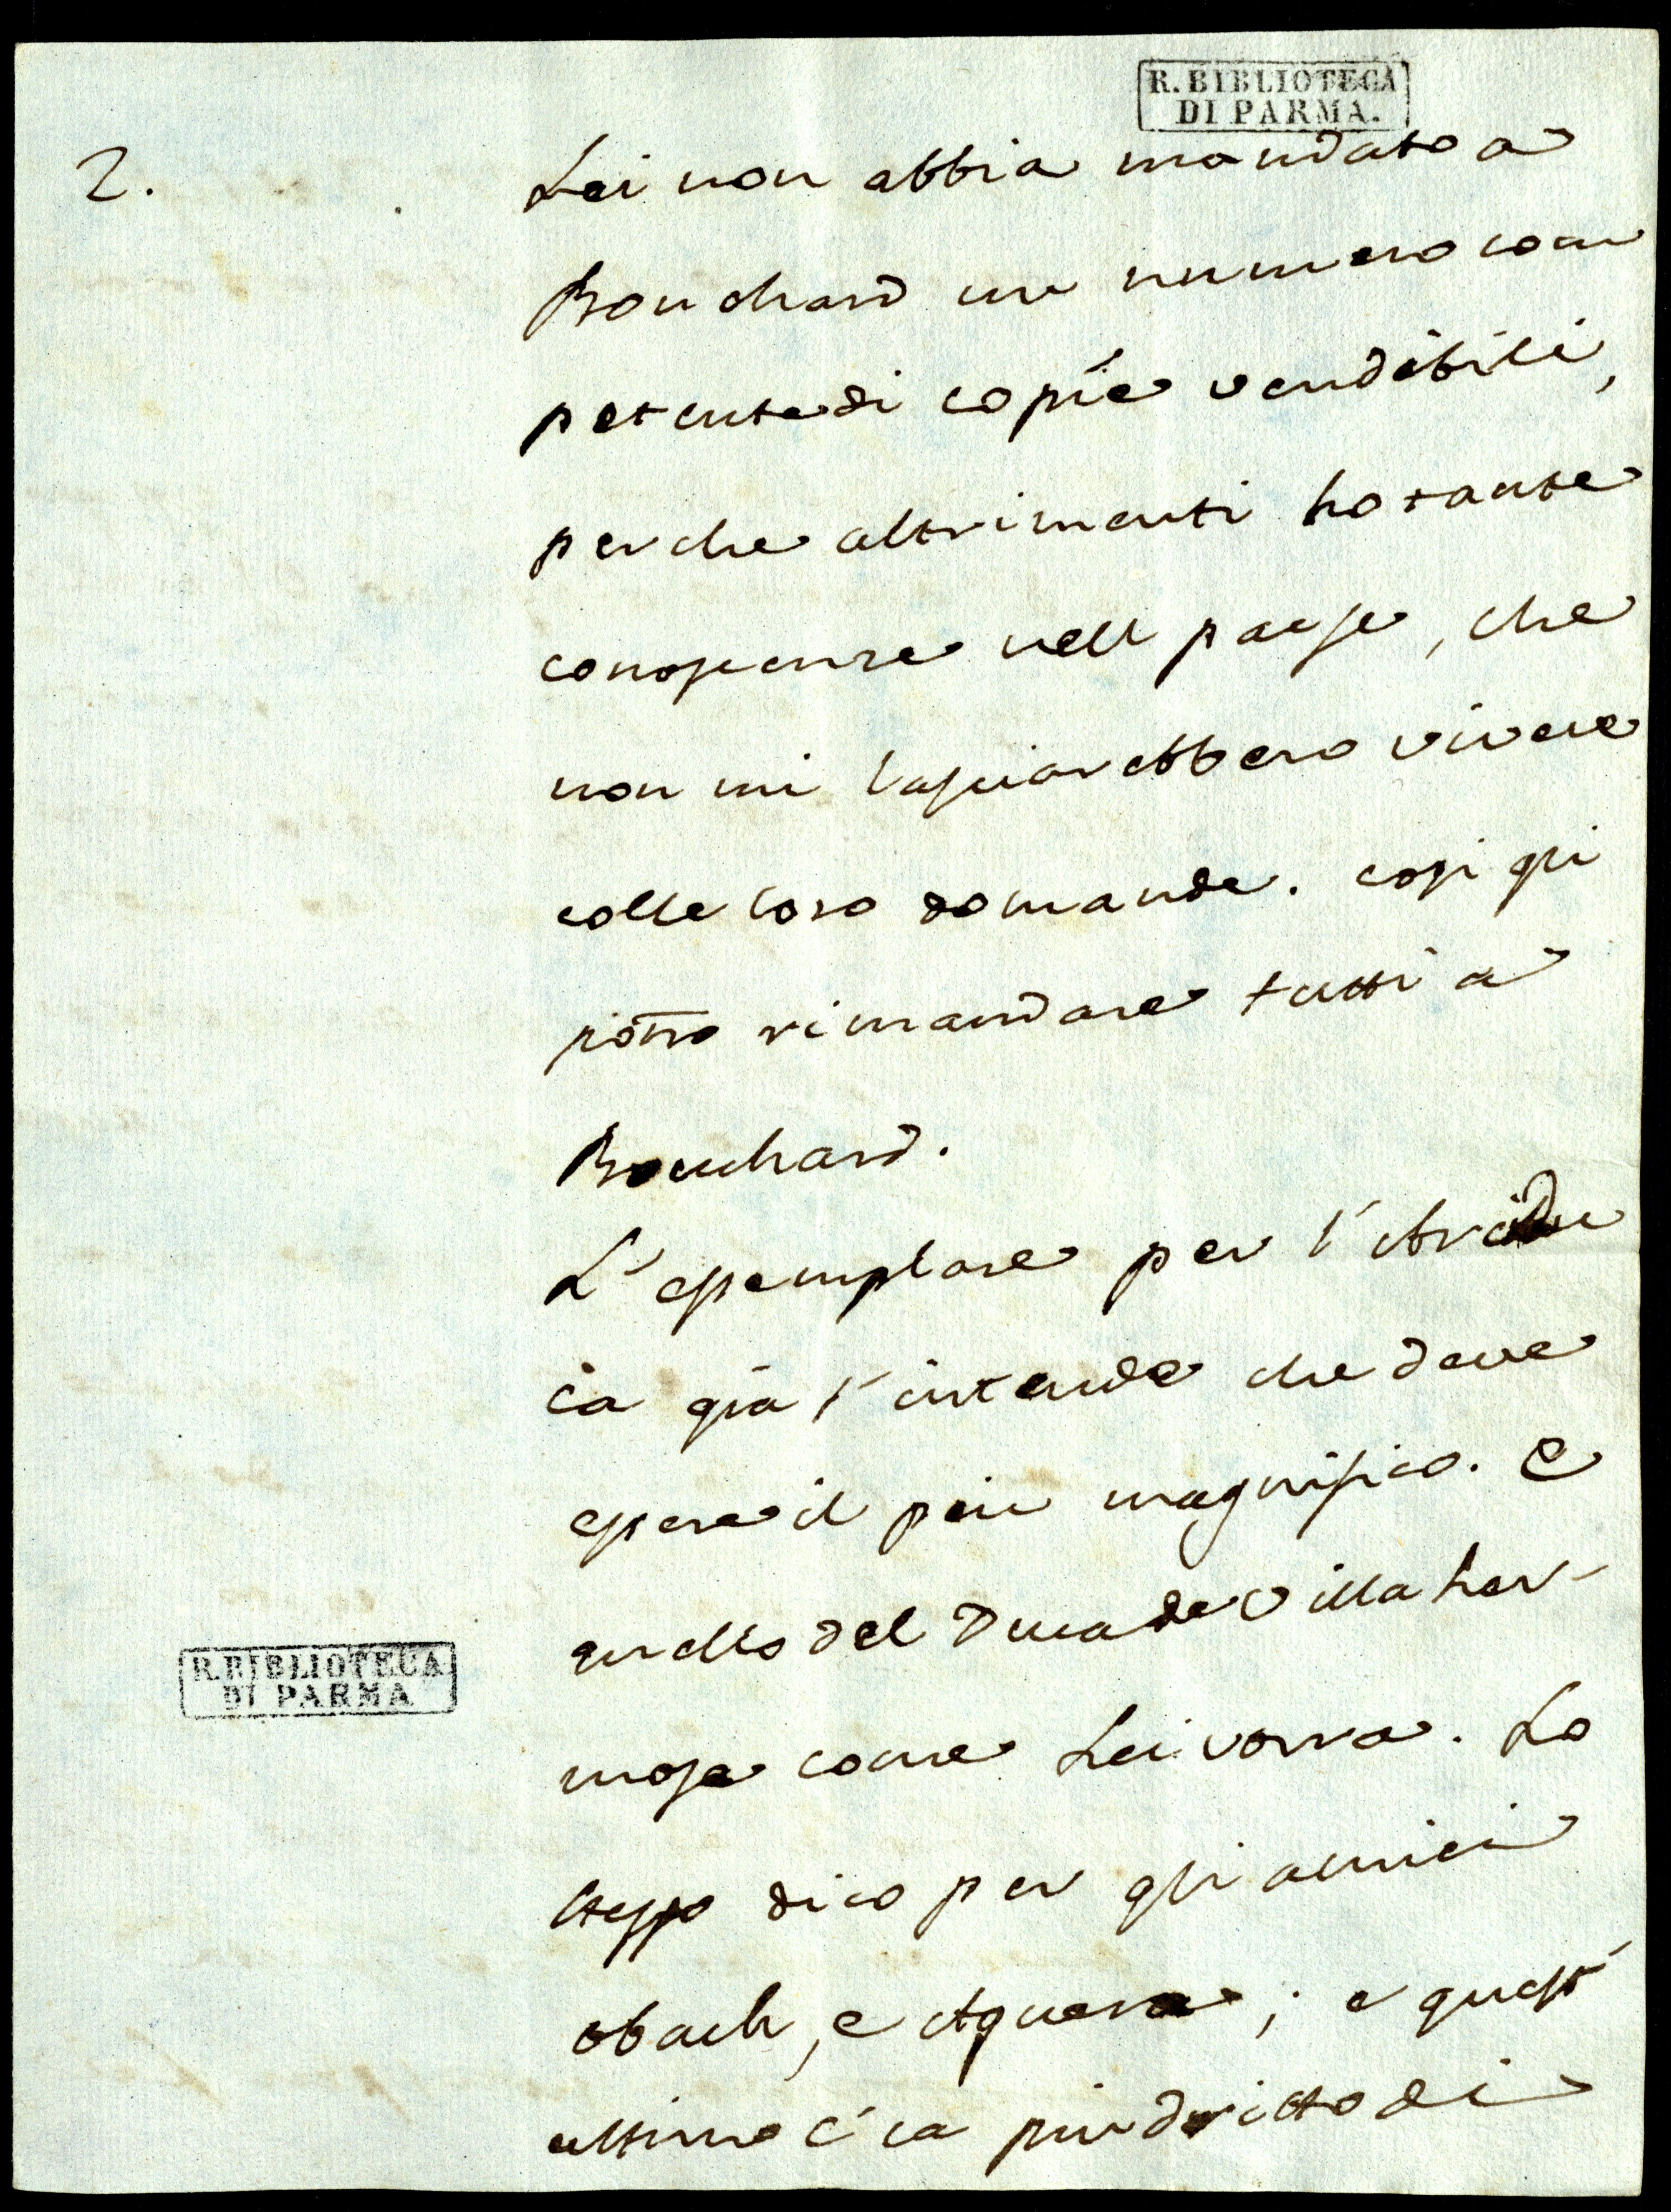 R. BIBLIOTECA
DI PARMA.
2.
Lei non abbia mandato a
Bouchard un numero com
petente di copie vendibili,
perche altrimenti ho tante
conoscenze nell paese, che
non mi lasciarebbero vivere
colle loro domande. cosi gli
potro rimandare tutti a
Bouchard.
L'essemplare per l'Arcidu
ca gia s'intende che deve
essere il piu magnifico. e
quello del Duca de Villaher-
mosa come Lei vorra. Lo
stesso dico per gli amici
Obach, e Aguera; e quest'
ultimo c'ia piu dritto di
R. BIBLIOTECA
DI PARMA